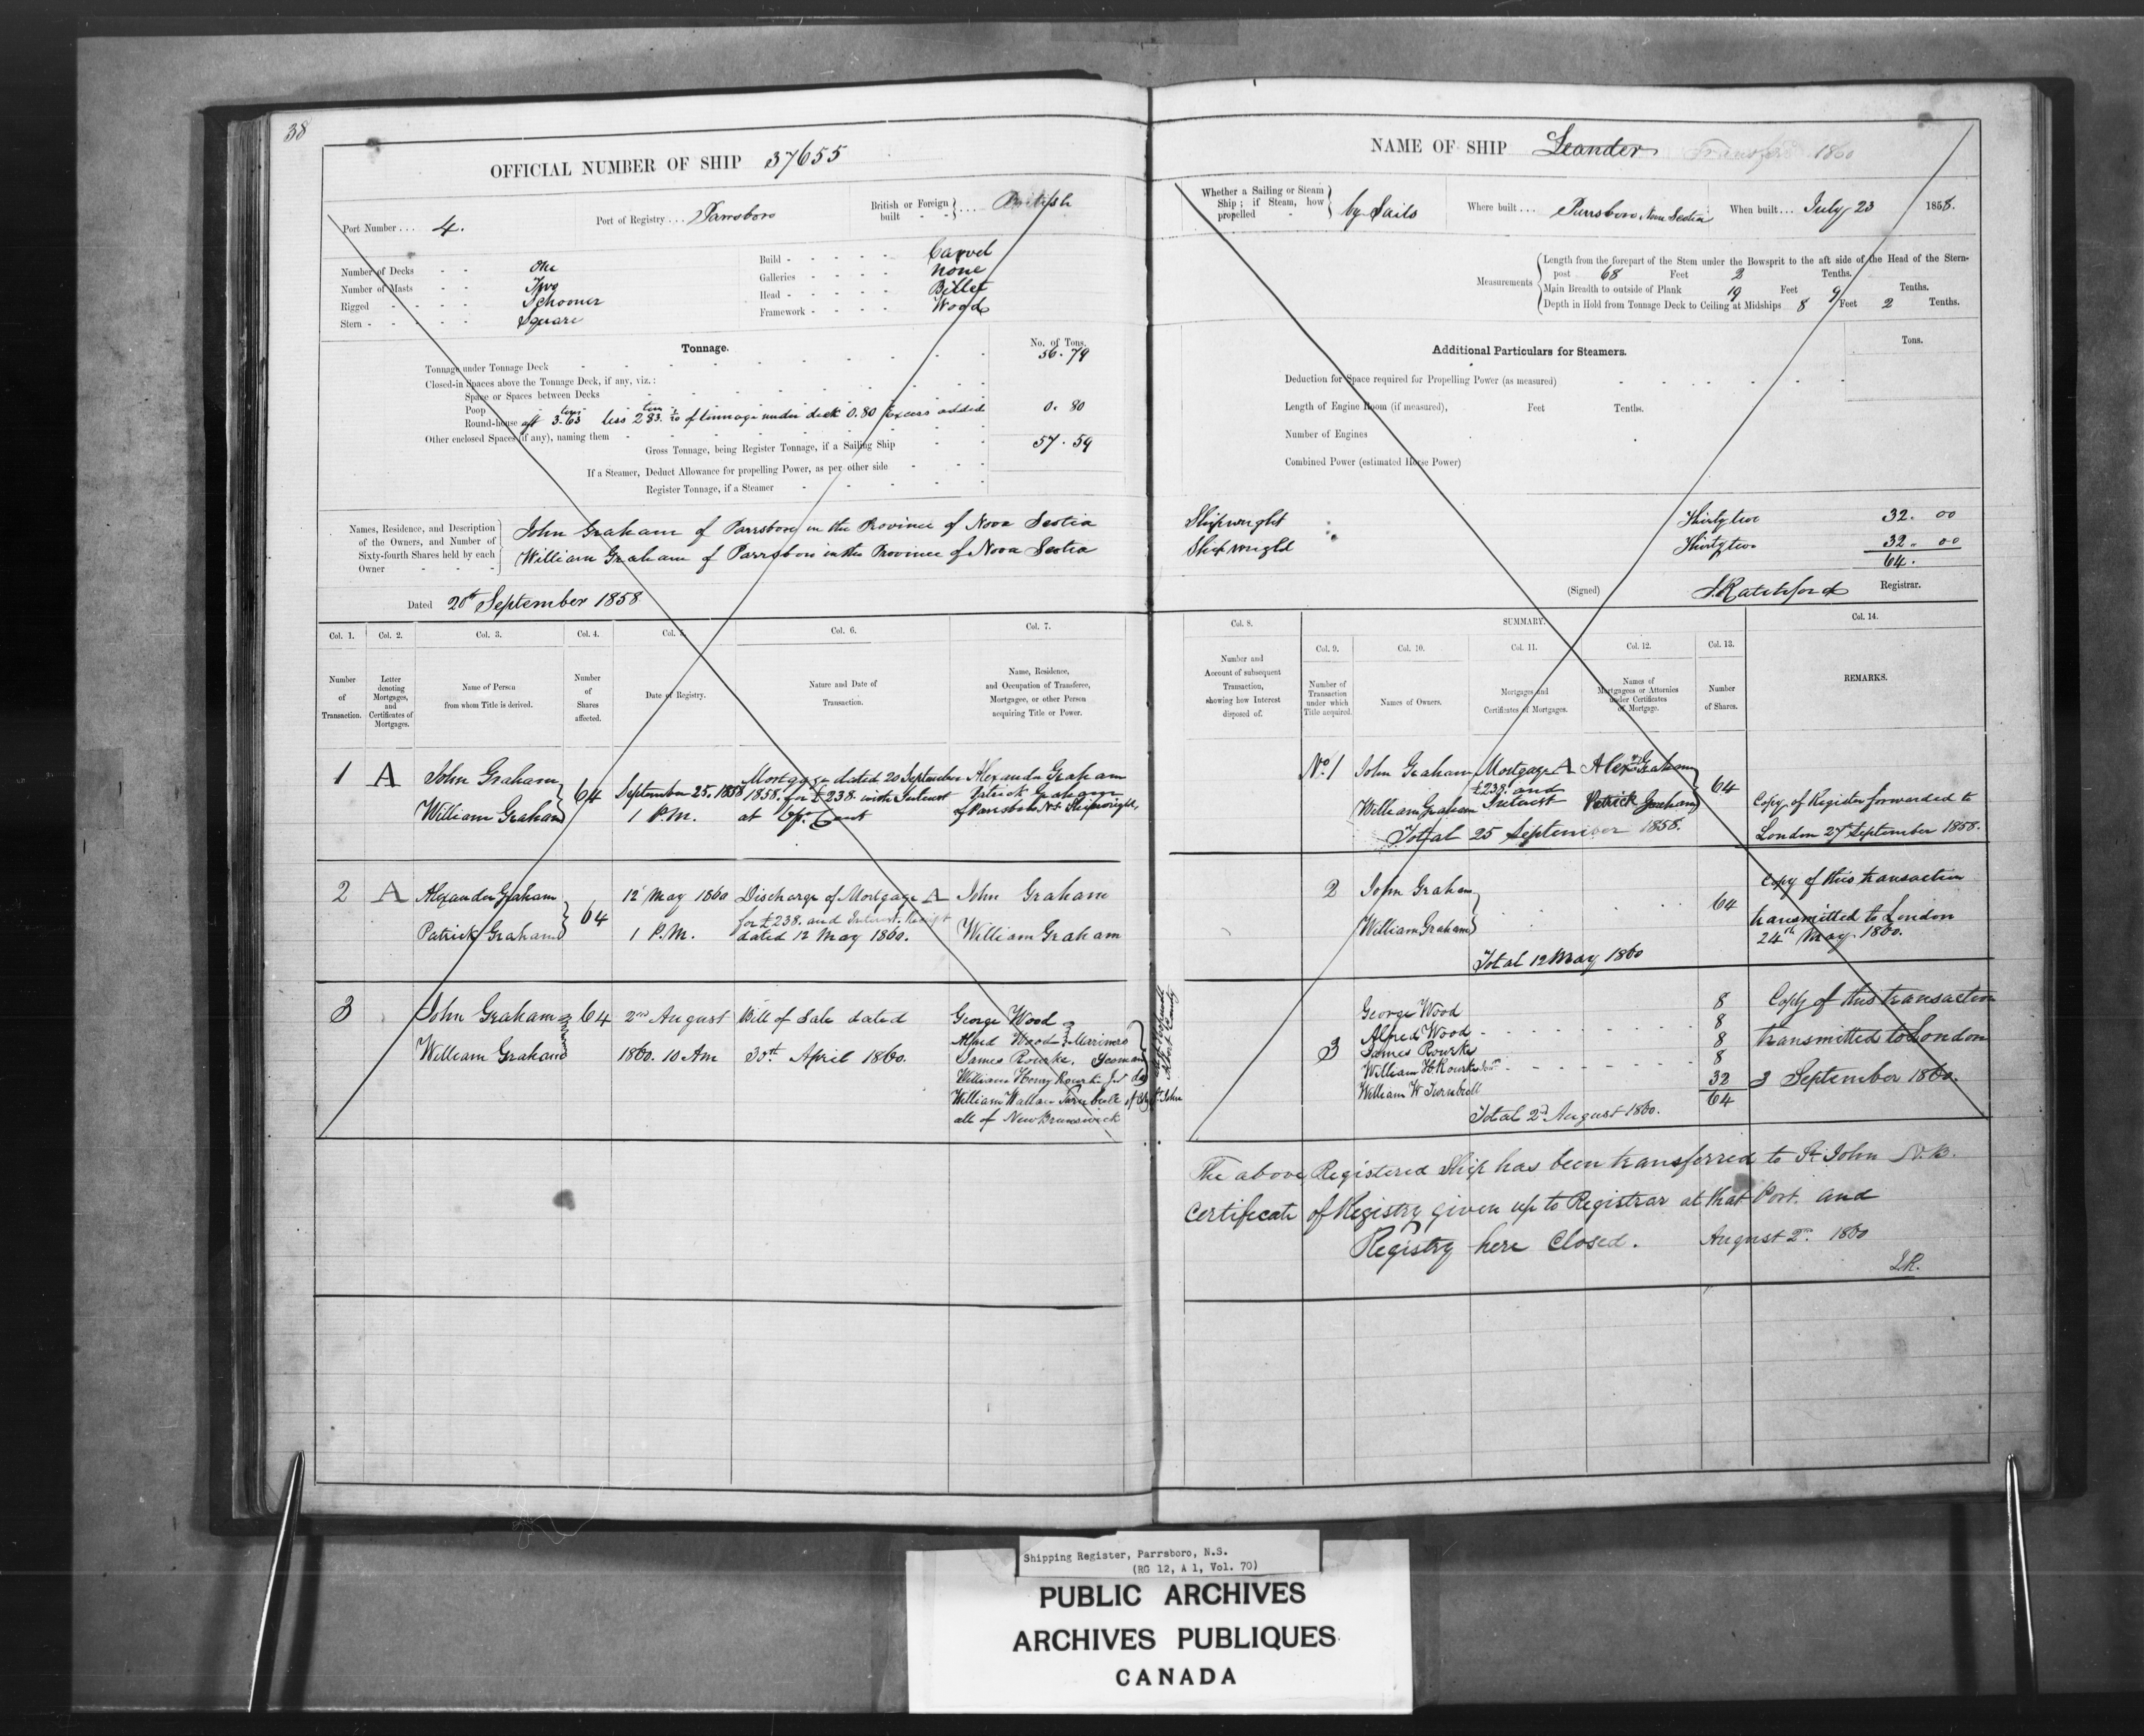 38
OFFICIAL NUMBER OF SHIP 37655
Port Number ... 4.
Port of Registry ... Parrsboro
British or Foreign built ... British
Number of Decks - - One
Number of Masts - - Two
Rigged - - - - Schooner
Stern - - - - - Square
Build - - - - - Carvel
Galleries - - - - None
Head - - - - - Billet
Framework - - - - Wood
Tonnage.
No. of Tons.
Tonnage under Tonnage Deck 56.79
Closed-in Spaces above the Tonnage Deck, if any, viz.:
Space or Spaces between Decks
Poop
Round-house aft 3.63 tons less 2.83 tons of tonnage under deck 0.80 Excess added 0.80
Other enclosed Spaces (if any), naming them
Gross Tonnage, being Register Tonnage, if a Sailing Ship 57.59
If a Steamer, Deduct Allowance for propelling Power, as per other side
Register Tonnage, if a Steamer
Names, Residence, and Description of the Owners, and Number of Sixty-fourth Shares held by each Owner
John Graham of Parrsboro in the Province of Nova Scotia
William Graham of Parrsboro in the Province of Nova Scotia
Dated 20th September 1858
Col. 1. Col. 2. Col. 3. Col. 4. Col. 5. Col. 6. Col. 7.
Number of Transaction.
Letter denoting Mortgages, and Certificates of Mortgages.
Name of Person from whom Title is derived.
Number of Shares affected.
Date of Registry.
Nature and Date of Transaction.
Name, Residence, and Occupation of Transferee, Mortgagee, or other Person acquiring Title or Power.
1 A John Graham
William Graham
64
September 25. 1858
1 P.M.
Mortgage dated 20 September
1858. for £238. with Interest
at
Alexander Graham
Patrick Graham
of Parrsboro N.S. Shipwrights
2 A Alexander Graham
Patrick Graham
64
12 May 1860
1 P.M.
Discharge of Mortgage A
for £238. and Interest. Receipt
dated 12 May 1860.
John Graham
William Graham
3 John Graham
William Graham
64
2nd August
1860. 10 Am
Bill of Sale dated
30th April 1860.
George Wood
Alfred Wood Mariners
James Rourke. Yeoman
William Henry Rourke Jnr do
William Wallace Turnbull of City St John
all of New Brunswick
NAME OF SHIP Leander Transferred 1860
Whether a Sailing or Steam Ship; if Steam, how propelled by Sails
Where built ... Parrsboro Nova Scotia
When built ... July 23 1858.
Measurements
Length from the forepart of the Stem under the Bowsprit to the aft side of the Head of the Stern-
post 68 Feet 2 Tenths.
Main Breadth to outside of Plank 19 Feet 9 Tenths.
Depth in Hold from Tonnage Deck to Ceiling at Midships 8 Feet 2 Tenths.
Additional Particulars for Steamers.
Tons.
Deduction for Space required for Propelling Power (as measured)
Length of Engine Room (if measured), Feet Tenths.
Number of Engines
Combined Power (estimated Horse Power)
Shipwright Thirty two 32. 00
Shipwright Thirty two 32. 00
64.
(Signed) J. Ratchford Registrar.
Col. 8.
SUMMARY.
Col. 9. Col. 10. Col. 11. Col. 12. Col. 13. Col. 14.
Number and Account of subsequent Transaction, showing how Interest disposed of.
Number of Transaction under which Title acquired.
Names of Owners.
Mortgages and Certificates of Mortgages.
Names of Mortgagees or Attornies under Certificates of Mortgage.
Number of Shares.
REMARKS.
No. 1 John Graham
William Graham
Mortgage A
£238. and
Interest
Alexr Graham
Patrick Graham
64
Total 25 September 1858.
Copy of Register forwarded to
London 27th September 1858.
2 John Graham
William Graham
64
Total 12 May 1860
Copy of this transaction
transmitted to London
24th May 1860.
3
George Wood 8
Alfred Wood 8
James Rourke 8
William H Rourke 8
William W Turnbull 32
64
Total 2d August 1860.
Copy of this transaction
transmitted to London
3 September 1860.
The above Registered Ship has been transferred to St. John N.B.
Certificate of Registry given up to Registrar at that Port. and
Registry here Closed. August 2nd. 1860
Shipping Register, Parrsboro, N.S.
(RG 12, A 1, Vol. 70)
PUBLIC ARCHIVES
ARCHIVES PUBLIQUES
CANADA